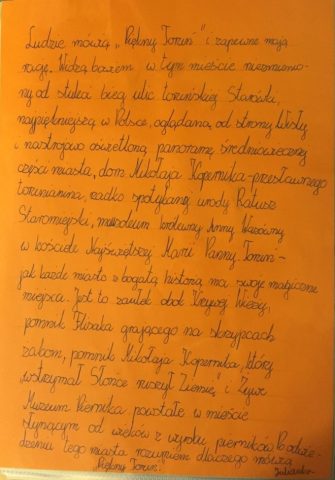 Ludzie mówią „Piękny Toruń" i zapewne mają
rację. Widzą bowiem w tym mieście niezmienio-
ny od stuleci bieg ulic toruńskiej Starówki,
najpiękniejszą w Polsce, oglądaną od strony Wisły
i nastrojowo oświetloną panoramę średniowiecznej
części miasta, dom Mikołaja Kopernika - przesławnego
torunianina, rzadko spotykanej urody Ratusz
Staromiejski, mauzoleum królewny Anny Wazówny
w kościele Najświętszej Marii Panny. Toruń -
jak każde miasto z bogatą historią ma swoje magiczne
miejsca. Jest to zaułek obok Krzywej Wieży,
pomnik Flisaka grającego na skrzypcach
żabom, pomnik Mikołaja Kopernika, który
„wstrzymał Słońce ruszył Ziemię" i Żywe
Muzeum Piernika powstałe w mieście
słynącym od wieków z wyrobu pierników. Po odwie-
dzeniu tego miasta rozumiem dlaczego mówią
„Piękny Toruń".